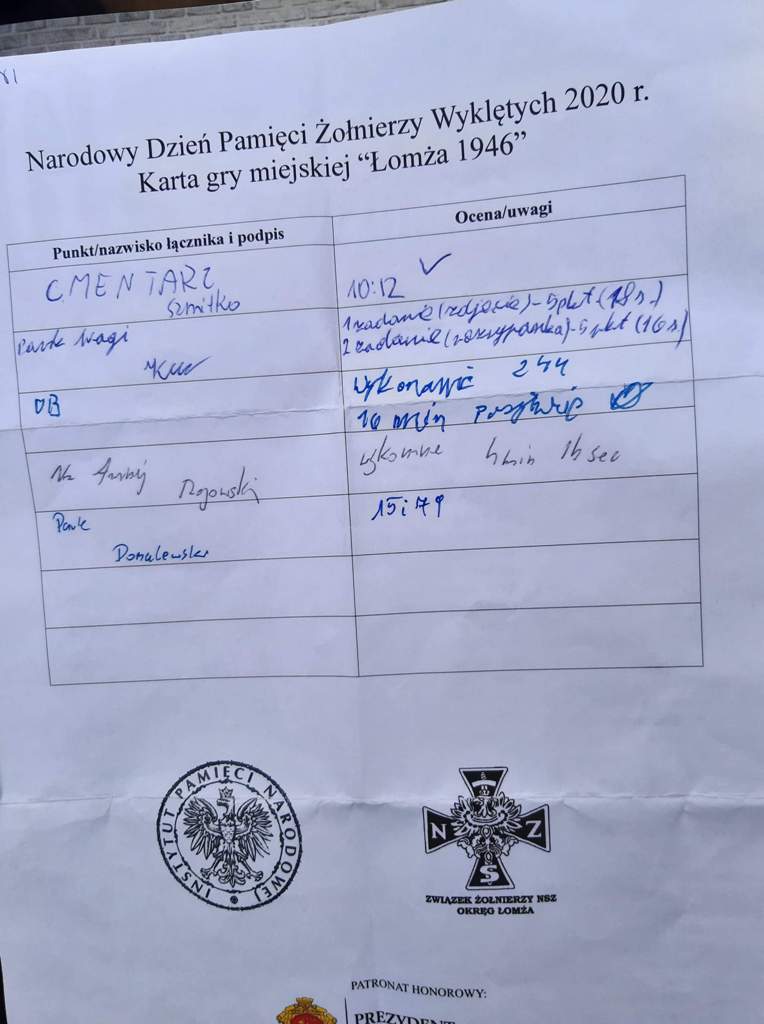 Narodowy Dzień Pamięci Żołnierzy Wyklętych 2020 r.
Karta gry miejskiej “Łomża 1946”
Punkt/nazwisko łącznika i podpis
Ocena/uwagi
CMENTARZ
Szmitko
10:12 ✓
Park Wagi
1 zadanie (zdjęcie) - 5pkt (18 s.)
2 zadanie (rozsypanka) - 5pkt (16 s)
UB
244
16 min
Rogowski
4 min 16 sec
Park
15 i 79
INSTYTUT PAMIĘCI NARODOWEJ
N Z
Ś
ZWIĄZEK ŻOŁNIERZY NSZ
OKRĘG ŁOMŻA
PATRONAT HONOROWY:
PREZYDENT